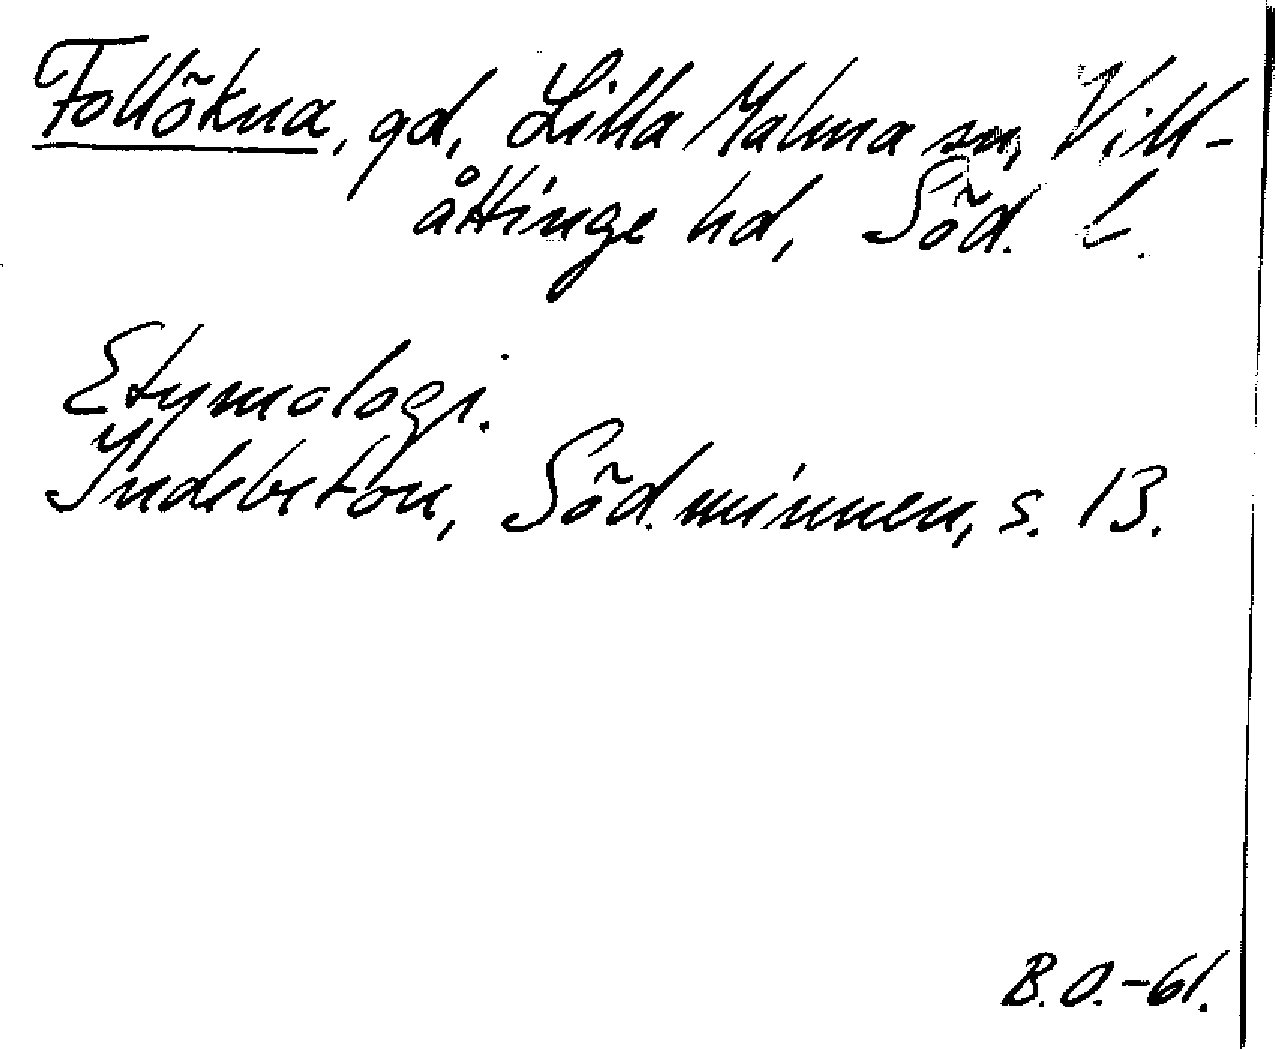 Follökna, gd, Lilla Malma sn, Vill-
åttinge hd, Söd. l.
Etymologi.
Indebetou, Söd. minnen, s. 13.
B.O.-61.